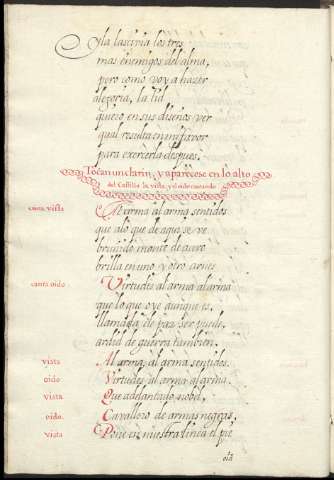 y la lascivia los tres
mas enemigos del alma,
pero como voy a hazer
alegoria, la lid
quiero en sus diseños ver
qual resulta en mi favor
para exercerla despues.
Tocan un clarin, y aparecese en lo alto
del Castillo la vista, y el oido cantando
canta vista
Al arma al arma sentidos
que alo que de aqui se ve
bruñido monte de acero
brilla en uno y otro arnes
canta oido
Virtudes al arma al arma
que lo que oye aunque es,
llamada de paz ser puede,
ardid de guerra tambien.
vista Al arma, al arma sentidos.
oido Virtudes al arma al arma.
vista Que adelantado
oido. Cavallero de armas negras,
vista Pone en nuestra linea el pie
oid